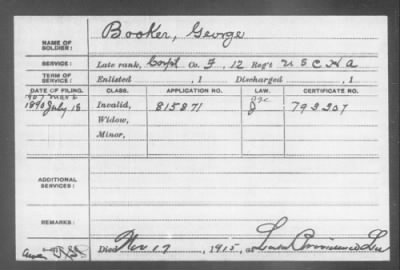 NAME OF SOLDIER: Booker, George
SERVICE: Late rank, Corpl Co. F, 12 Reg't U S C H A
TERM OF SERVICE: Enlisted , 1 Discharged , 1
DATE OF FILING. CLASS. APPLICATION NO. LAW. CERTIFICATE NO.
1890 July 18 Invalid, 815871 J 793207
Widow,
Minor,
ADDITIONAL SERVICES:
REMARKS:
Died Nov 17, 1915,